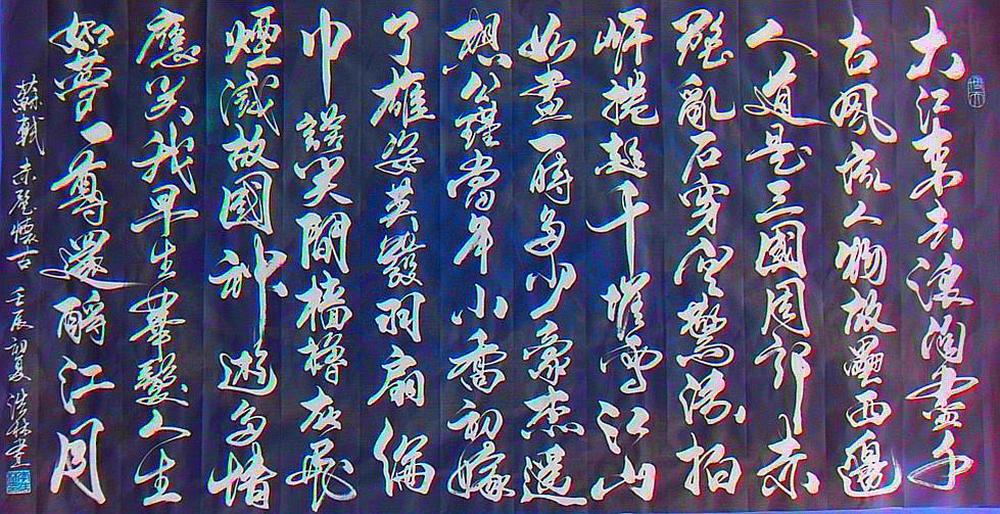 大江東去浪淘盡千
古風流人物故壘西邊
人道是三國周郎赤
壁亂石穿空驚濤拍
岸捲起千堆雪江山
如畫一時多少豪杰遥
想公瑾當年小喬初嫁
了雄姿英發羽扇綸
巾談笑間檣櫓灰飛
煙滅故國神遊多情
應笑我早生華髮人生
如夢一尊還酹江月
蘇軾 赤壁懷古 壬辰初夏 浩林書